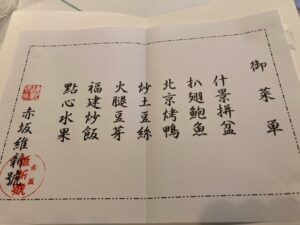 御菜单
什景拼盆
扒翅鮑魚
北京烤鴨
炒土豆絲
火腿豆芽
福建炒飯
點心水果
赤坂維新號